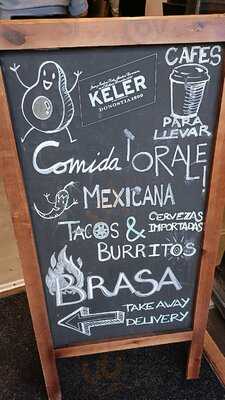 CAFES
KELER
DONOSTIA 1890
PARA
LLEVAR
Comida ¡ORALE!
MEXICANA
TACOS & CERVEZAS
IMPORTADAS
BURRITOS
BRASA
TAKE AWAY
DELIVERY